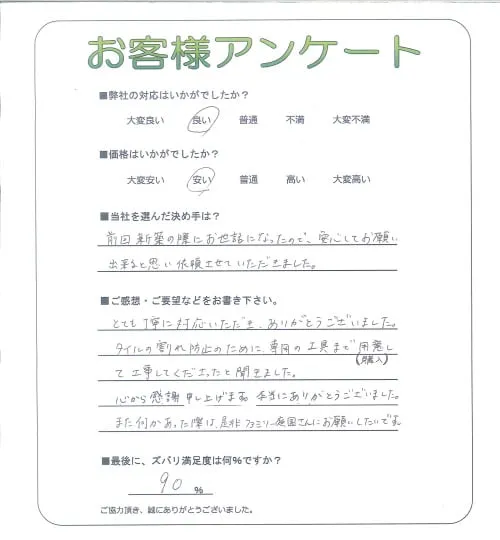 お客様アンケート
■弊社の対応はいかがでしたか？
大変良い 良い 普通 不満 大変不満
■価格はいかがでしたか？
大変安い 安い 普通 高い 大変高い
■当社を選んだ決め手は？
前回新築の際にお世話になったので、安心してお願い
出来ると思い依頼させていただきました。
■ご感想・ご要望などをお書き下さい。
とても丁寧に対応いただき、ありがとうございました。
タイルの割れ防止のために、専用の工具まで用意し
(購入)
て工事してくださったと聞きました。
心から感謝申し上げます。本当にありがとうございました。
また何かあった際は、是非ファミリー庭園さんにお願いしたいです。
■最後に、ズバリ満足度は何%ですか？
90 %
ご協力頂き、誠にありがとうございました。